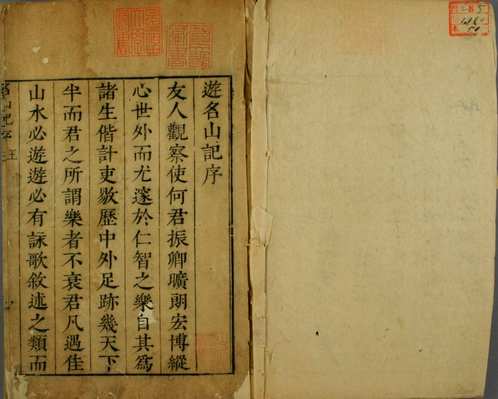 遊名山記序
友人觀察使何君振卿曠朗宏博縱
心世外而尤邃於仁智之樂自其為
諸生偕計吏敭歷中外足跡幾天下
半而君之所謂樂者不衰君凡遇佳
山水必遊遊必有詠歌敘述之類而